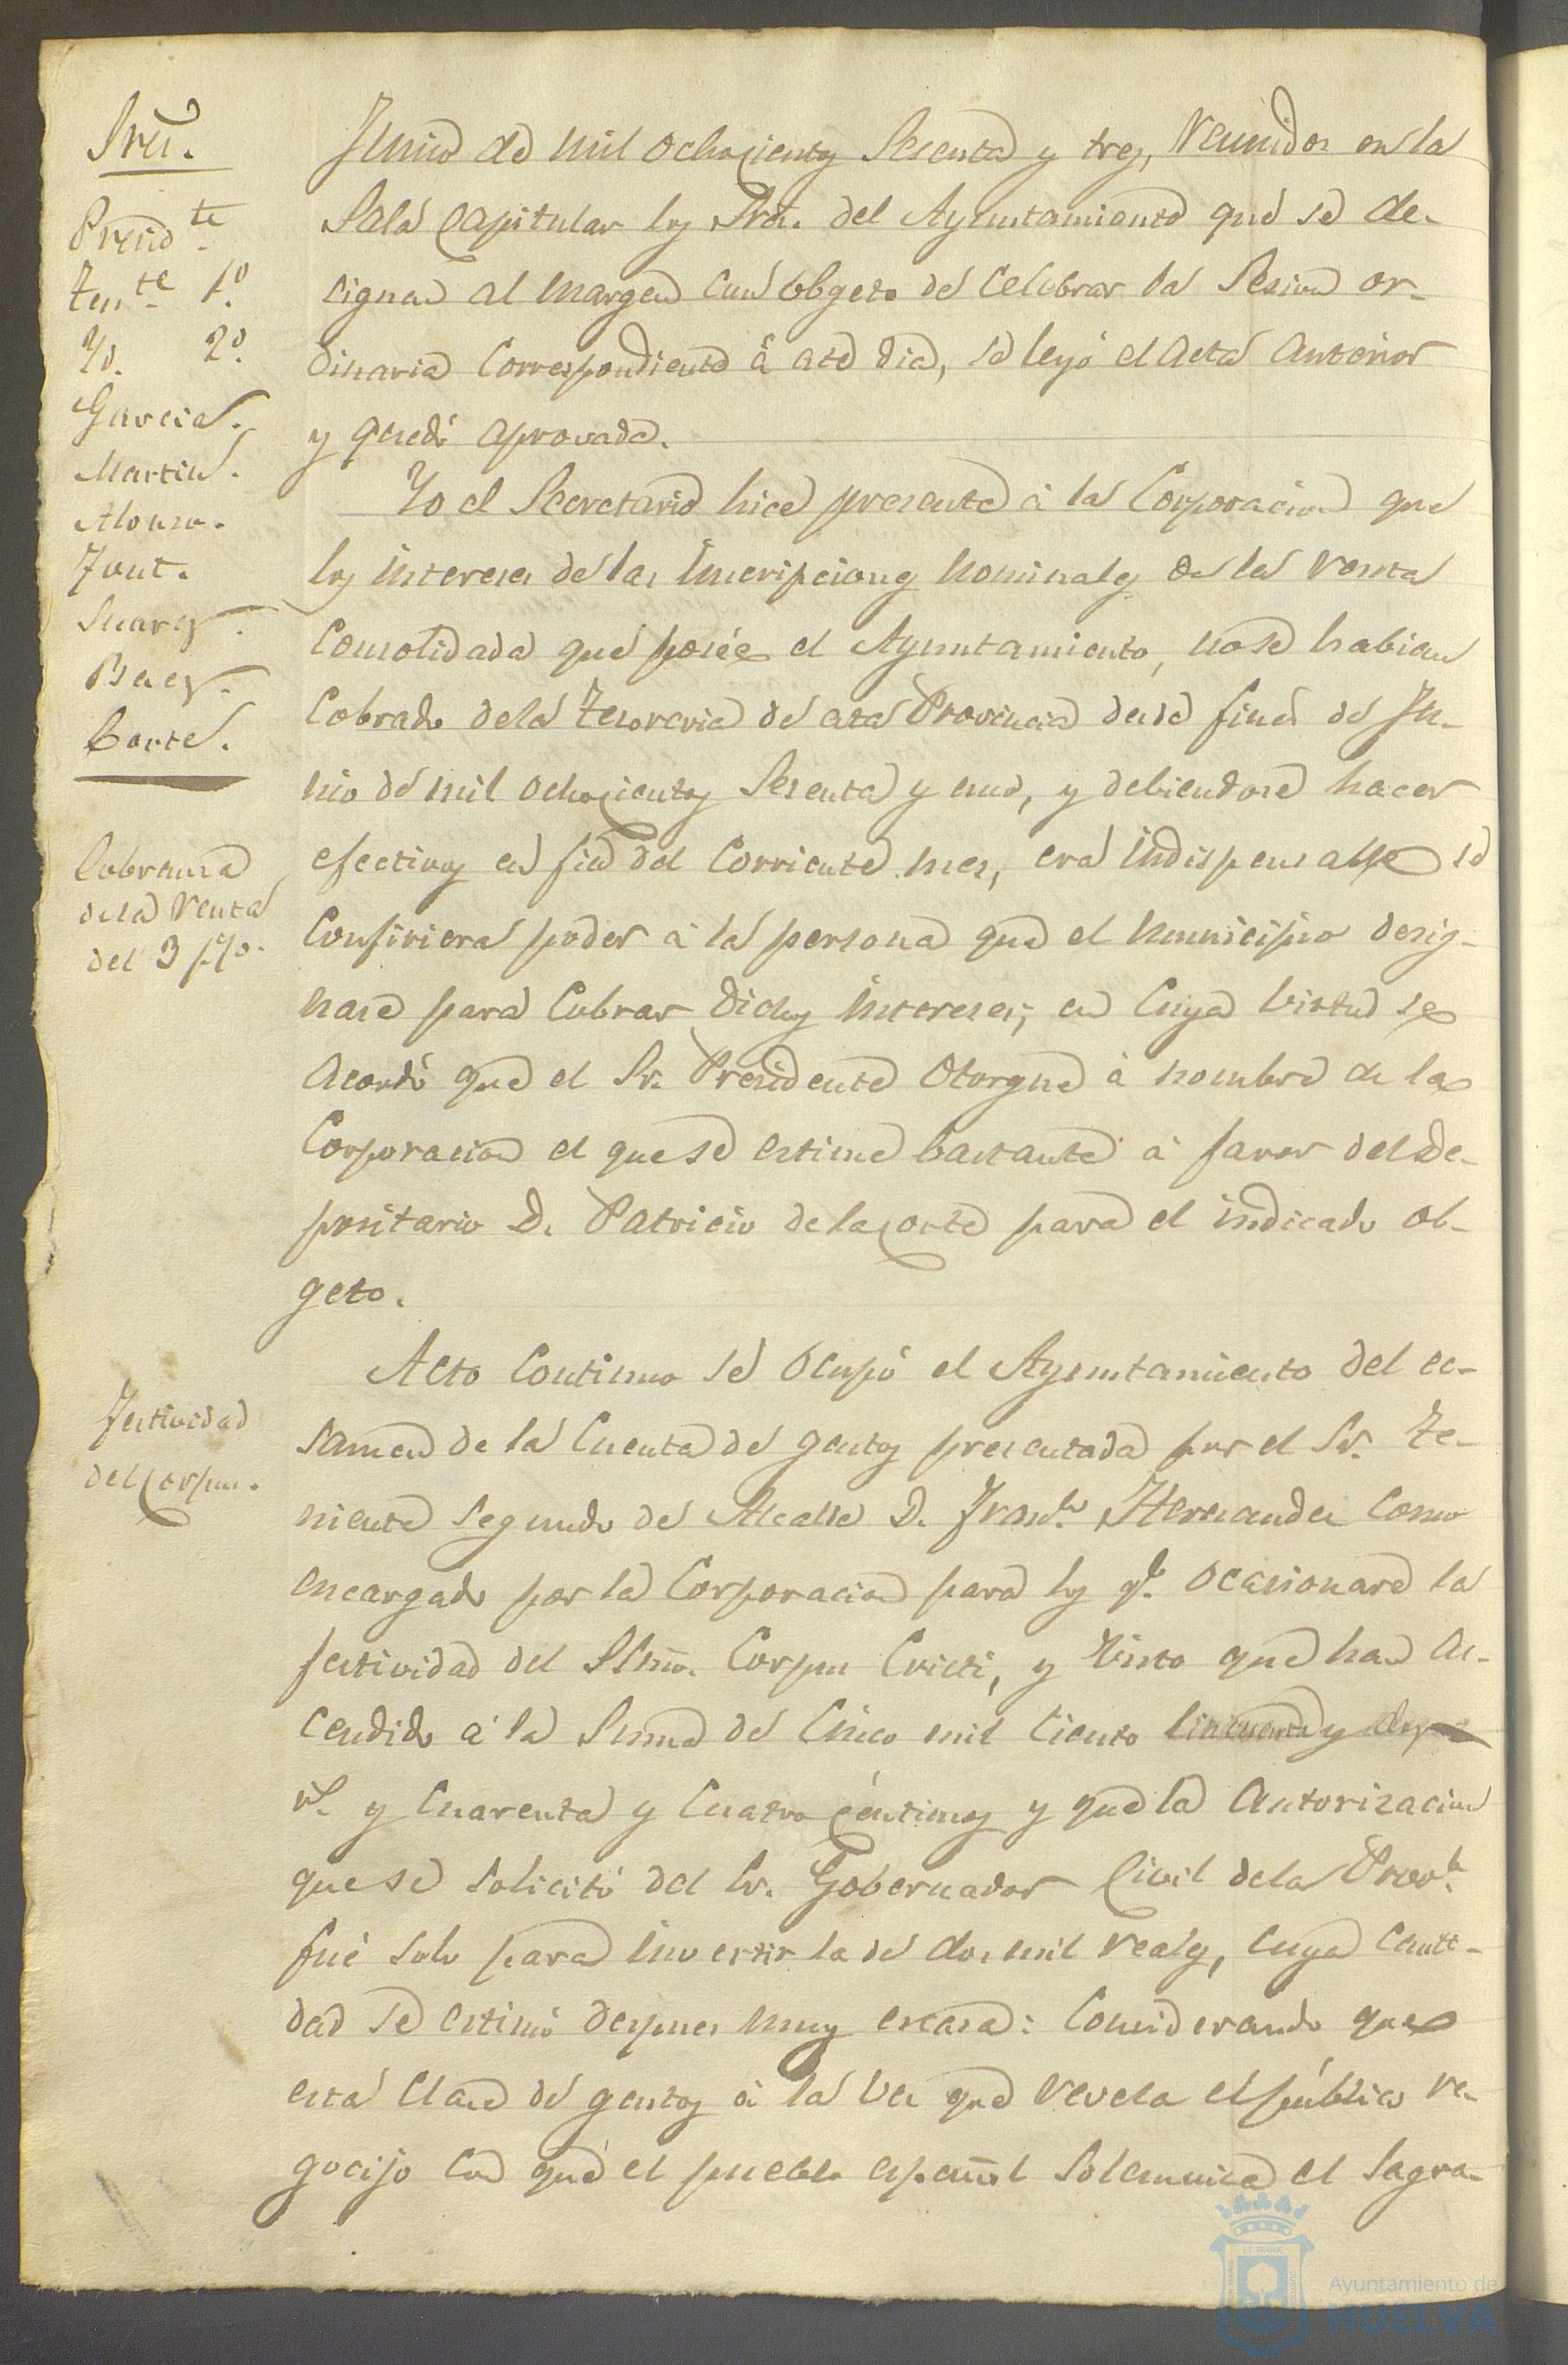 Sres.
Presid.te
Ten.te 1.º
Yd. 2.º
Garcia.
Martin.
Alonso.
Font.
Suarez.
Baez.
Corte.
Cobranza
de la renta
del 3 p%.
Festividad
del Corpus.
Junio de mil ochocientos sesenta y tres, reunidos en la
Sala Capitular los Sres. del Ayuntamiento que se de-
signan al margen con obgeto de celebrar la Sesion or-
dinaria correspondiente á este dia, se leyó el acta anterior
y quedó aprovada.
Yo el Secretario hice presente á la Corporacion que
los intereses de las inscripciones nominales de la renta
consolidada que posée el Ayuntamiento, no se habian
cobrado de la Tesoreria de esta Provincia desde fines de Ju-
nio de mil ochocientos sesenta y uno, y debiendose hacer
efectivos en fin del corriente mes, era indispensable se
confiriera poder á la persona que el municipio desig-
nase para cobrar dichos intereses; en cuya virtud se
acordó que el Sr. Presidente otorgue á nombre de la
Corporacion el que se estime bastante á favor del De-
positario D. Patricio de la Corte para el indicado ob-
geto.
Acto continuo se ocupó el Ayuntamiento del ec-
samen de la cuenta de gastos presentada por el Sr. Te-
niente segundo de Alcalde D. Fran.co Hernandez como
encargado por la Corporacion para los q.e ocasionare la
festividad del SSmo. Corpus Cristi, y visto que han as-
cendido á la suma de cinco mil ciento cincuenta y dos
r.s y cuarenta y cuatro céntimos y que la autorizacion
que se solicitó del Sr. Gobernador Civil de la Prov.a
fué solo para invertir la de dos mil reales, cuya canti-
dad se estimó despues muy escasa: Considerando que
esta clase de gastos á la vez que revela el público re-
gocijo con que el pueblo español solemniza el Sagra-
Ayuntamiento de
HUELVA